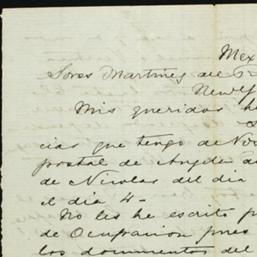 Mex
Sores Martinez del
New
Mis queridos
cias que tengo de
postal de Angela
de Nicolas del dia
el dia 4-
No les he escrito
de Ocupacion pues
los documentos del